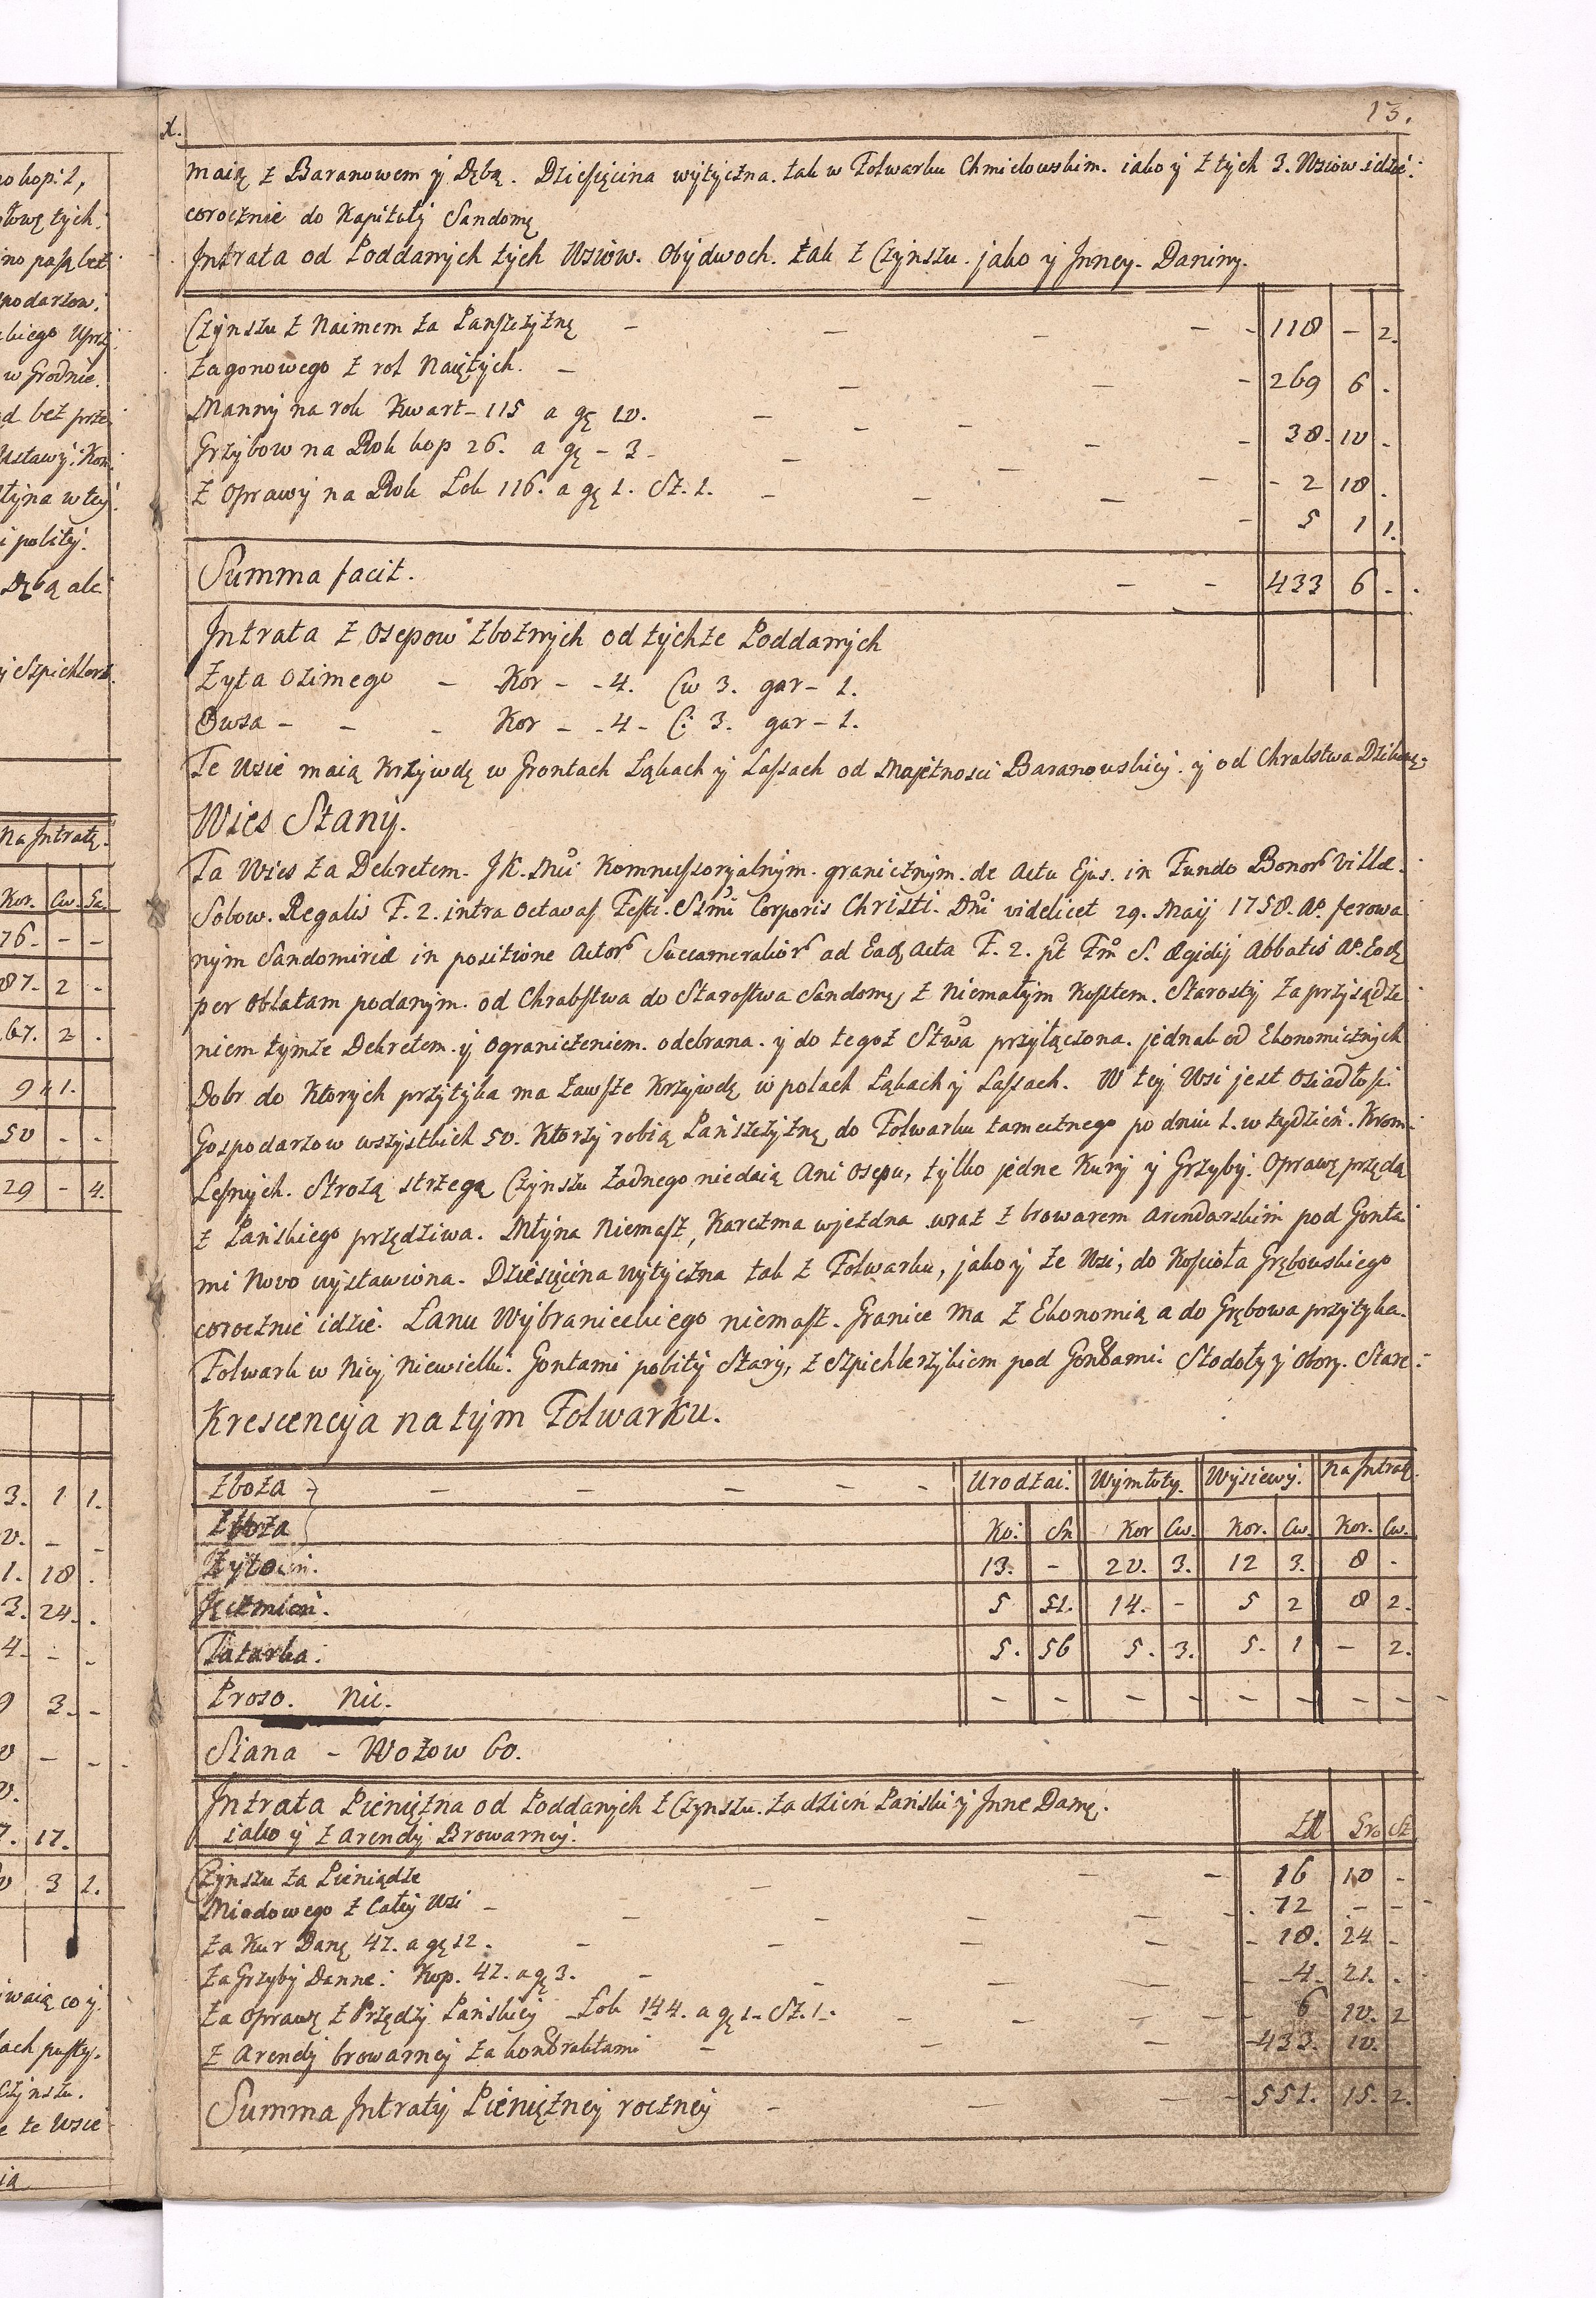 13.
x.
maią z Baranowem y Dębą. Dziesięcina wytyczna. tak w Folwarku Chmielowskim. iako y z tych 3. Wsiow idzie:
corocznie do Kapituły Sandomę
Intrata od Poddanych tych Wsiow. Obydwoch. tak z Czynszu. jako y Inney. Daniny.
Czynszu z Naimem za Panszczyznę - - - - - 118 - 2.
Zagonowego z rol Naiętych. - - - - 269 6 .
Manny na rok Kwart - 115 a gę 10. - - - - 38. 10 -
Grzybow na Rok kop 26. a gę - 3 - - - - - - 2 18 .
Z Oprawy na Rok Łok 116. a gę 1. Sz. 1. - - - - 5 1 1.
Summa facit. - - 433 6 - .
Intrata z Osepow zboznych od tychze Poddanych
Zyta Ozimego - Kor - - 4. Cw 3. gar - 1.
Owsa - - - Kor - - 4 - C: 3. gar - 1.
Te Wsie maią Krzywdę w Grontach Łąkach y Lassach od Majętnosci Baranowskiey. y od Chrabstwa Dzikow:
Wies Stany.
Ta Wies za Dekretem. JK. Mci Kommissoryalnym. granicznym. de Actu Ejus. in Fundo Bonor Villæ.
Sobow. Regalis F. 2. intra Octavas Festi. Ssmi Corporis Christi. Dni videlicet 29. Maij 1758. Ao. ferowa
nym Sandomiriæ in positione Actor Succameralior ad Eadę Acta F. 2. pt Fm S. Ægidij Abbatis Ao. Eodę
per Oblatam podanym. od Chrabstwa do Starostwa Sandomę, z Niemałym Kosztem. Starosty Zaprzysądze
niem tymze Dekretem. y Ograniczeniem. odebrana. y do tegoz Stwa przyłączona. jednak od Ekonomicznych
Dobr do Ktorych przytyka ma zawsze Krzywdę w polach Łąkach y Lassach. W tey Wsi jest Osiadłosci
Gospodarzow wszystkich 50. Ktorzy robią Pańszczyznę do Folwarku tamecznego po dniu 1. w tydzień. Krom:
Lesnych. Strozą strzegą Czynszu zadnego niedaią Ani Osepu, tylko jedne Kury y Grzyby. Oprawę przędą
z Pańskiego przędziwa. Młyna Niemasz, Karczma wjezdna wraz z browarem arendarskim pod Gonta:
mi Novo wystawiona. Dziesięcina Wytyczna tak z Folwarku, jako y ze Wsi, do Koscioła Grębowskiego
corocznie idzie. Łanu Wybranieckiego niemasz. Granice ma z Ekonomią a do Grębowa przytyka.
Folwark w Niey Niewielki. Gontami pobity Stary, z Szpichlerzykiem pod Gontami. Stodoły y Obory. Stare:
Krescencya na tym Folwarku.
Zboza - - - - - Urodzai. Wymłoty. Wysiewy. Na Intratę.
Zboza Ko: Sn Kor Cw. Kor. Cw. Kor. Cw.
Zyto 13. - 20. 3. 12 3. 8 -
Jęczmień. 5 51. 14. - 5 2 8 2.
Tatarka. 5. 56 5. 3. 5. 1 - 2.
Proso. Nic. - - - - - - - -
Siana - Wozow 60.
Intrata Pieniężna od Poddanych z Czynszu. za dzień Pański y Inne Danę.
iako y z Arendy Browarney. Zł Gro Sz
Czynszu za Pieniądze - - - 16 10 -
Miodowego z Całey Wsi - - - - - 72 - -
Za Kur Danę 47. a gę 12. - - - - - 18. 24 -
Za Grzyby Danne: Kop. 47. a gę 3. - - - - - 4. 21. .
Za Oprawę z Przędzy Pańskiey - Łok 144. a gę 1 - Sz. 1 - - - - - 6 10. 2
Z Arendy browarney za kontraktami - - - - 433. 10.
Summa Intraty Pieniężney roczney - - - 551. 15. 2.